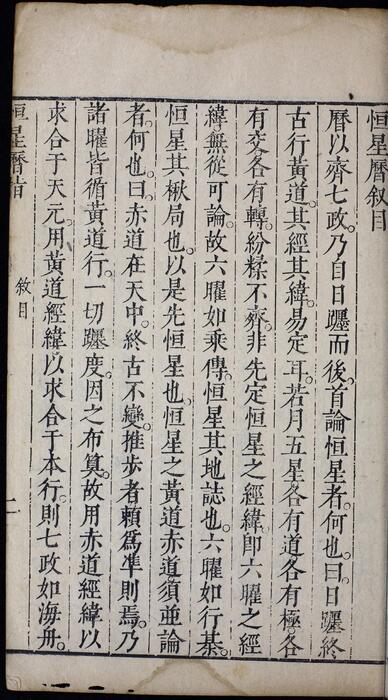 恒星曆敘目
曆以齊七政。乃自日躔而後。首論恒星者。何也。曰。日躔終
古行黃道。其經其緯。易定耳。若月五星。各有道。各有極。各
有交。各有轉。紛糅不齊。非先定恒星之經緯。卽六曜之經
緯。無從可論。故六曜如乘傳。恒星其地誌也。六曜如行棊。
恒星其楸局也。以是先恒星也。恒星之黃道赤道須並論
者。何也。曰。赤道在天中。終古不變。推步者賴爲準則焉。乃
諸曜皆循黃道行。一切躔度。因之布算。故用赤道經緯以
求合于天元。用黃道經緯以求合于本行。則七政如海舟。
恒星曆指
敘目
一